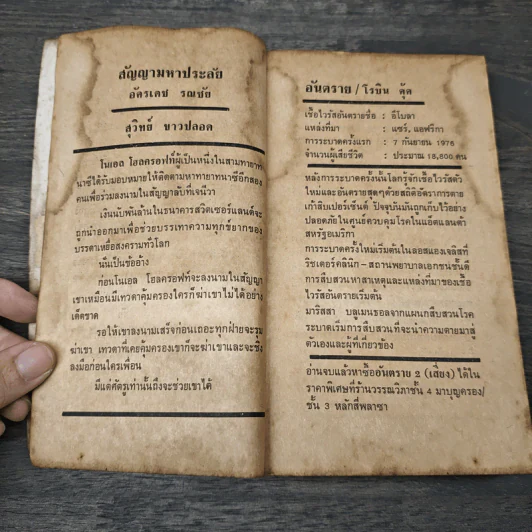 สัญญามหาประลัย
อัครเดช รณชัย
สุวิทย์ ขาวปลอด
โนเอล โฮลครอฟท์ผู้เป็นหนึ่งในสามทายาท
นาซีได้รับมอบหมายให้ติดตามหาทายาทนาซีอีกสอง
คนเพื่อร่วมลงนามในสัญญาลับที่เจนีวา
เงินนับพันล้านในธนาคารสวิตเซอร์แลนด์จะ
ถูกนำออกมาเพื่อช่วยบรรเทาความทุกข์ยากของ
บรรดาเหยื่อสงครามทั่วโลก
นั่นเป็นข้ออ้าง
ก่อนโนเอล โฮลครอฟท์จะลงนามในสัญญา
เขาเหมือนมีเทวดาคุ้มครองใครก็ฆ่าเขาไม่ได้อย่าง
เด็ดขาด
รอให้เขาลงนามเสร็จก่อนเถอะทุกฝ่ายจะรุม
ฆ่าเขา เทวดาที่เคยคุ้มครองเขาก็จะฆ่าเขาและจะชิง
ลงมือก่อนใครเพื่อน
มีแต่ศัตรูเท่านั้นถึงจะช่วยเขาได้
อันตราย / โรบิน คุ้ค
เชื้อไวรัสอันตรายชื่อ : อีโบลา
แหล่งที่มา : แซร์, แอฟริกา
การระบาดครั้งแรก : 7 กันยายน 1976
จำนวนผู้เสียชีวิต : ประมาณ 18,800 คน
หลังการระบาดครั้งนั้นโลกรู้จักเชื้อไวรัสตัว
ใหม่และอันตรายสุดๆด้วยสถิติอัตราการตาย
เก้าสิบเปอร์เซ็นต์ ปัจจุบันมันถูกเก็บไว้อย่าง
ปลอดภัยในศูนย์ควบคุมโรคในแอ็ตแลนต้า
สหรัฐอเมริกา
การระบาดครั้งใหม่เริ่มต้นในลอสแองเจลิสที่
ริชเตอร์คลินิก–สถานพยาบาลเอกชนชั้นดี
การสืบสวนหาสาเหตุและแหล่งที่มาของเชื้อ
ไวรัสอันตรายเริ่มต้น
มาริสสา บลูเมนธอลจากแผนกสืบสวนโรค
ระบาดเริ่มการสืบสวนที่จะนำความตายมาสู่
ตัวเองและผู้ที่เกี่ยวข้อง
อ่านจบแล้วหาซื้ออันตราย 2 (เสี่ยง) ได้ใน
ราคาพิเศษที่ร้านวรรณวิภาชั้น 4 มาบุญครอง/
ชั้น 3 หลักสี่พลาซา